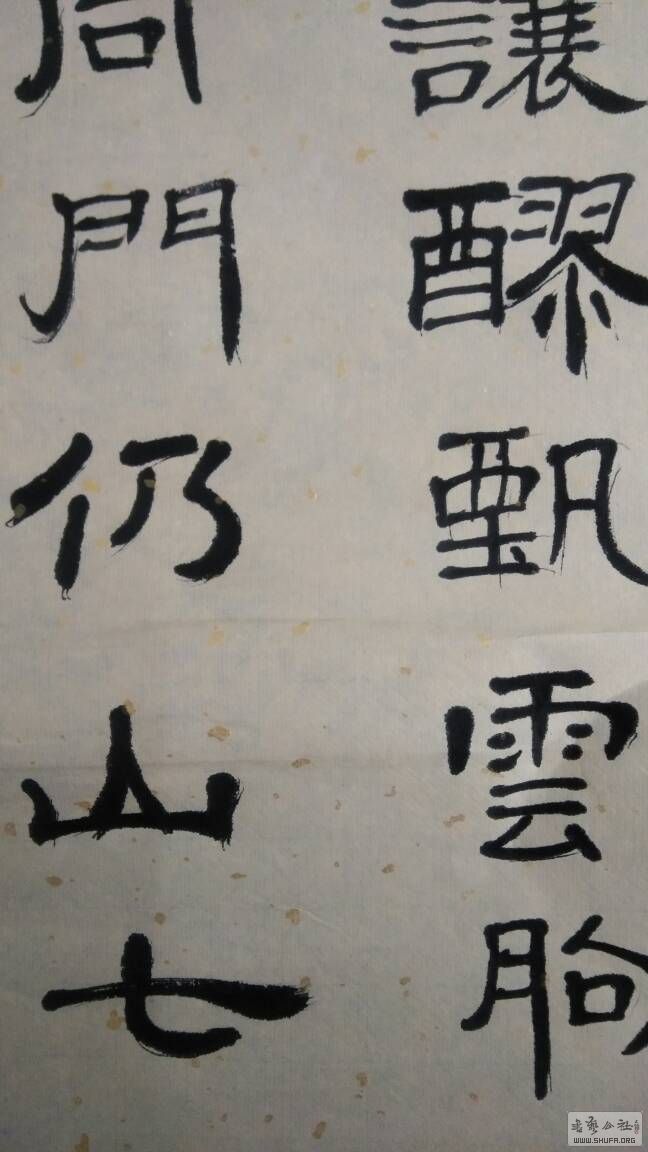 讓醪甄雲朐
門仍山七
書藝公社
WWW.SHUFA.ORG